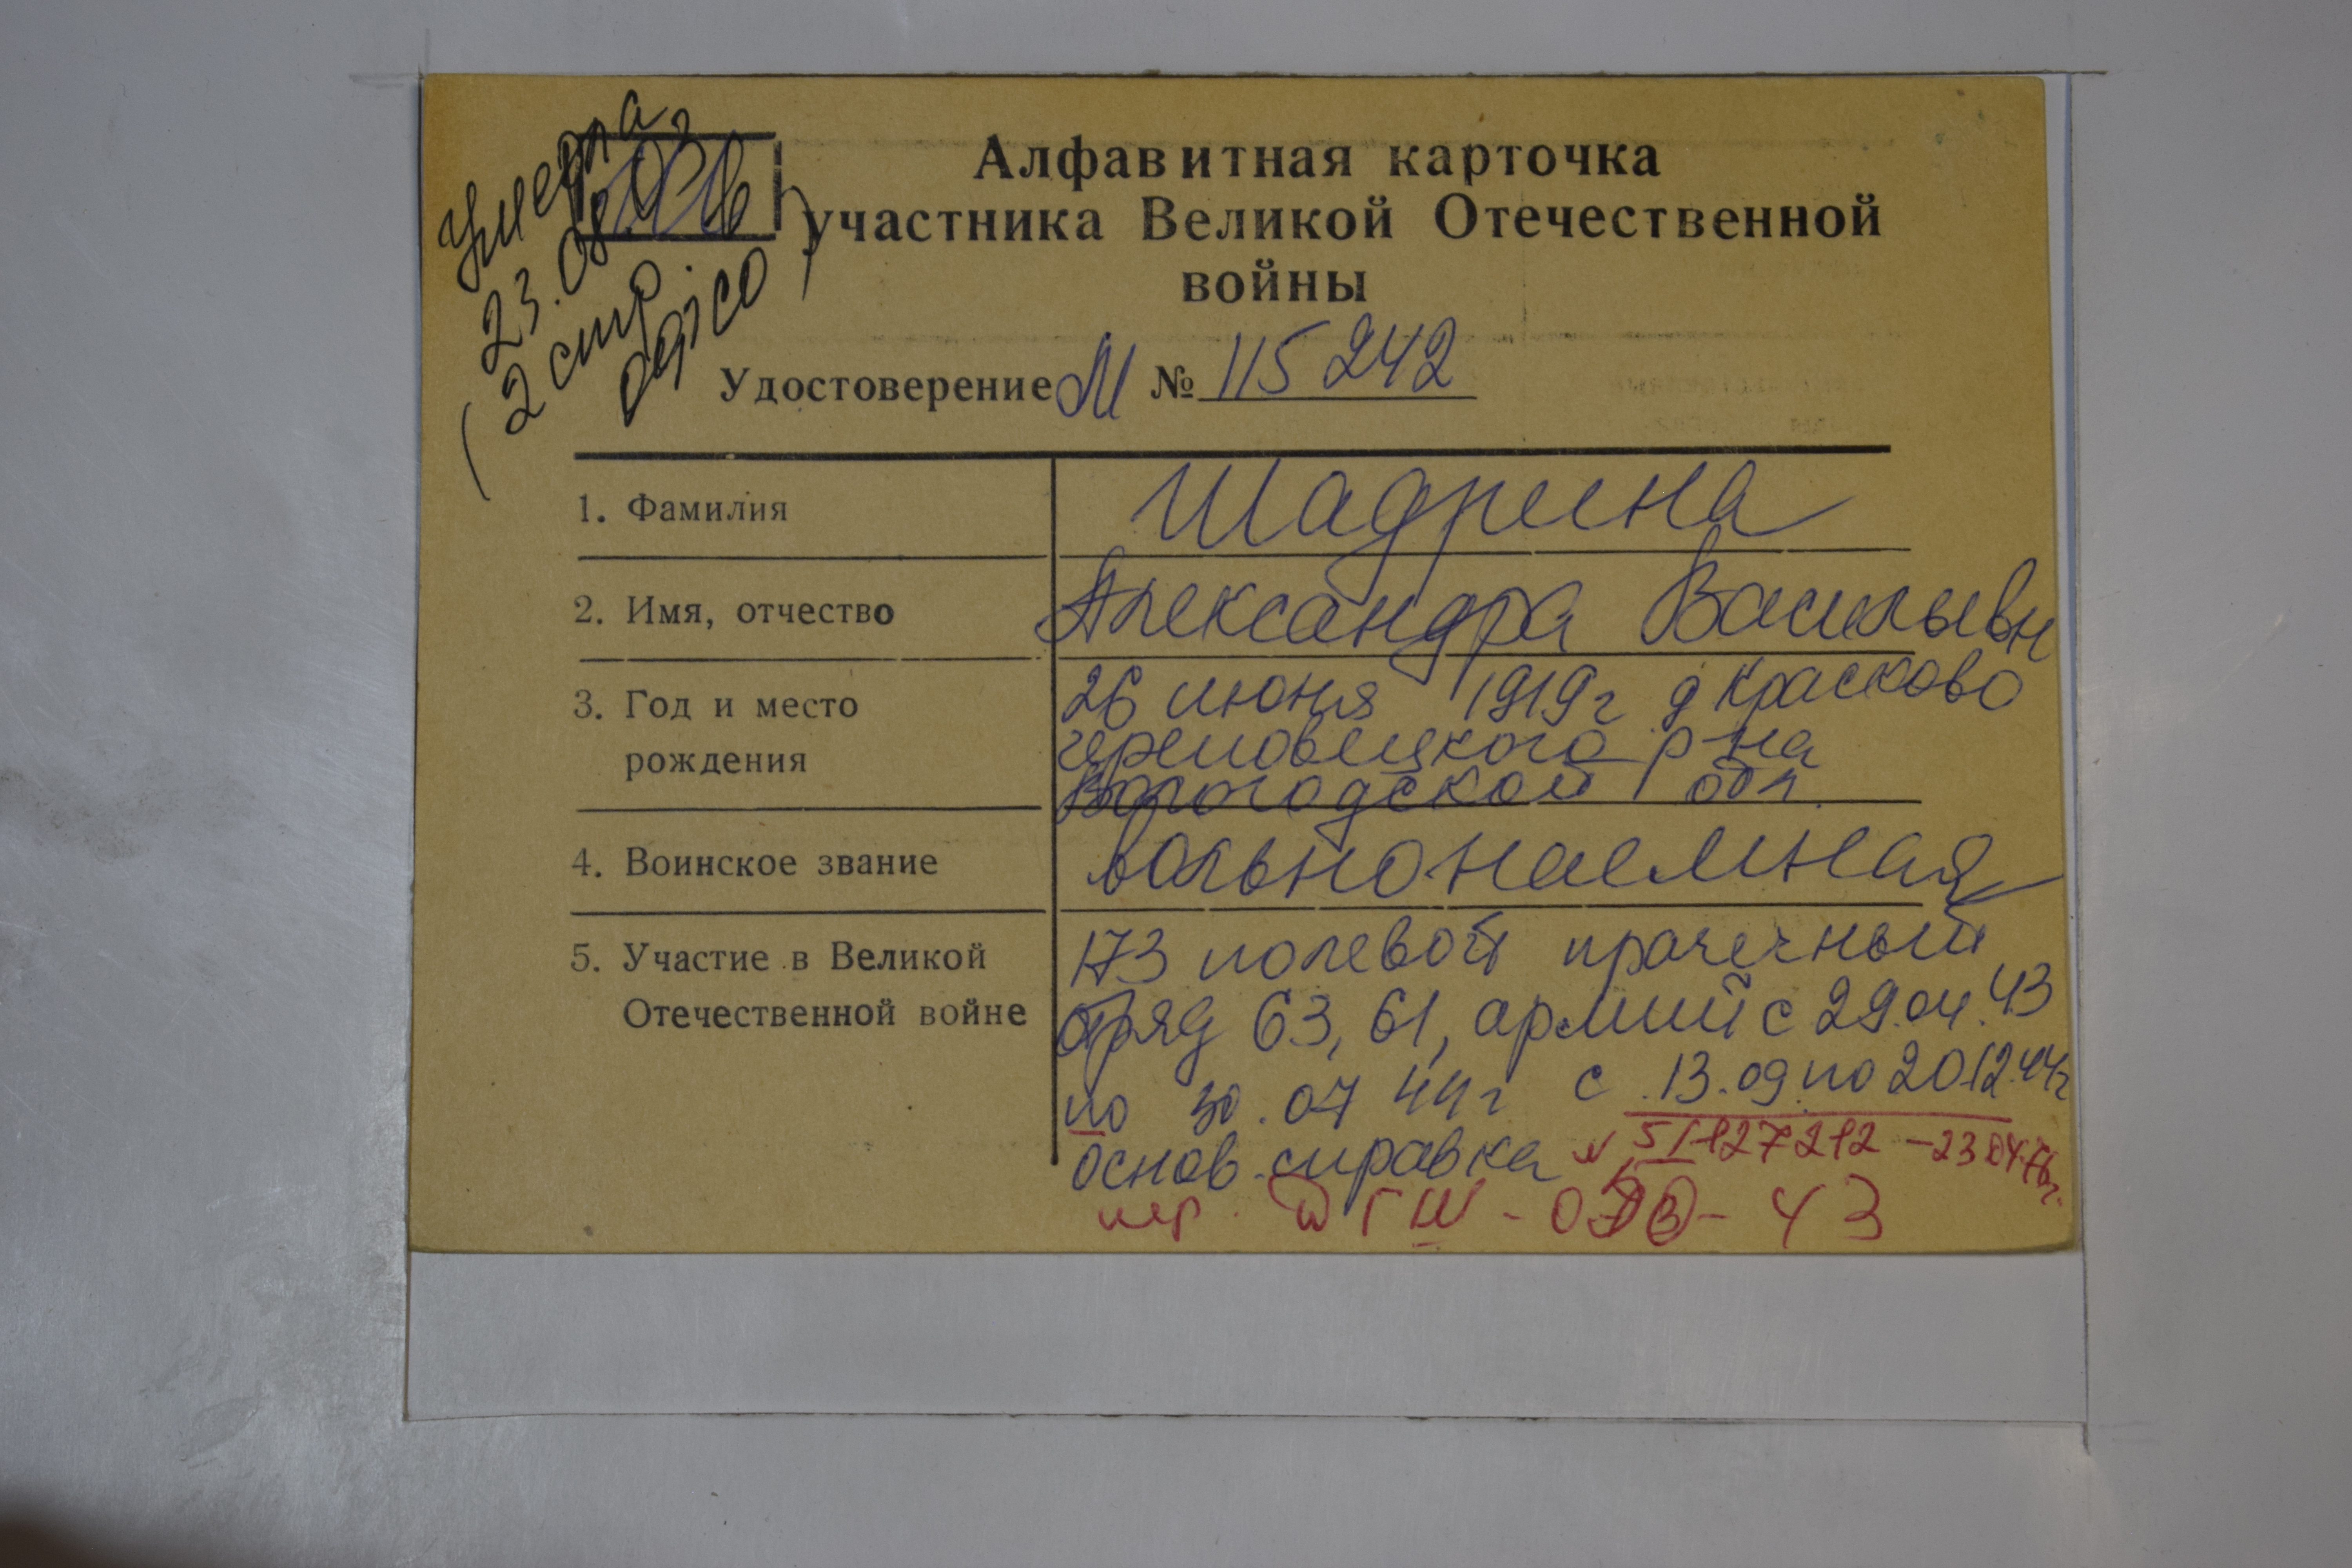 Умерла
23.08.02
(2 стр.
Алфавитная карточка
участника Великой Отечественной
войны
Удостоверение М № 115 242
1. Фамилия Шадрина
2. Имя, отчество Александра Васильевн
3. Год и место рождения 26 июня 1919г д Красково
череповецкого р-на
Вологодской обл.
4. Воинское звание вольнонаемная
5. Участие в Великой Отечественной войне 173 полевой прачечный
отряд 63, 61, армий с 29.04.43
по 30.07 44г с 13.09 по 20 12.44г
основ. справка № 5/127212 – 23 04.76г.